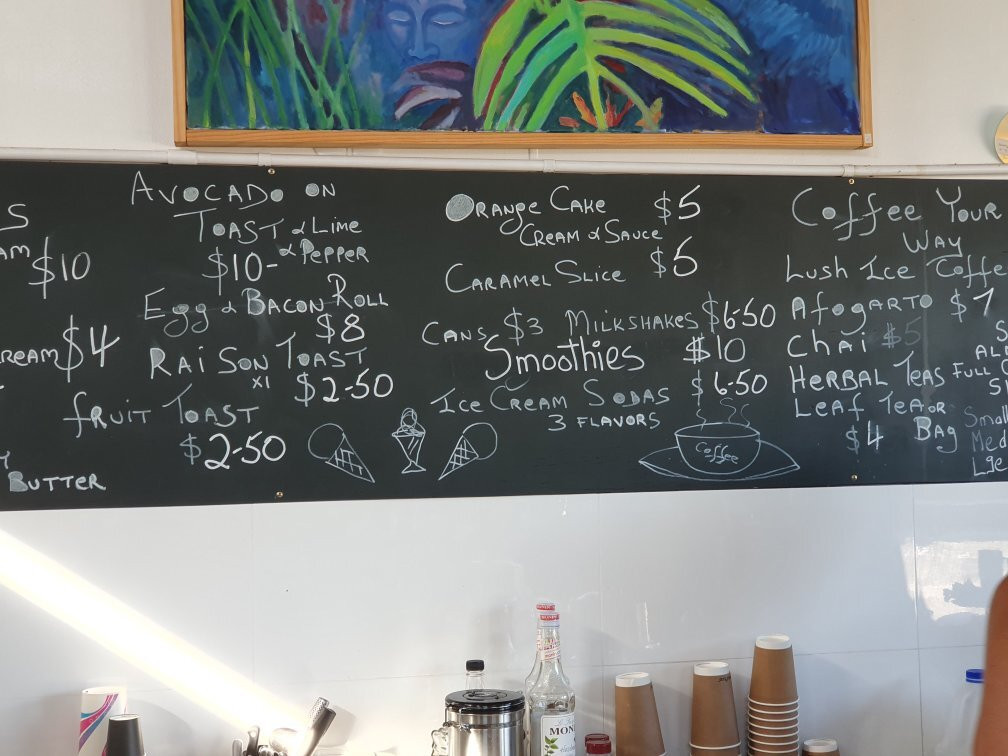 S
$10
$4
BUTTER
AVOCADO ON
TOAST & LIME
& PEPPER
$10-
Egg & BACON ROLL
$8
RAiSON TOAST
x1 $2-50
fRUIT TOAST
$2-50
ORANGE CAKE $5
CREAM & SAUCE
CARAMEL SLICE $5
CANS $3 MILKSHAKES $6-50
Smoothies $10
ICE CREAM SODAS $6-50
3 FLAVORS
Coffee
Coffee YOUR
WAY
LUSH ICE Coffe
Afogarto $7
Chai $5
HERBAL TEAS FULL
LEAF TEA OR
$4 BAG
Small
Med
Lge
MON